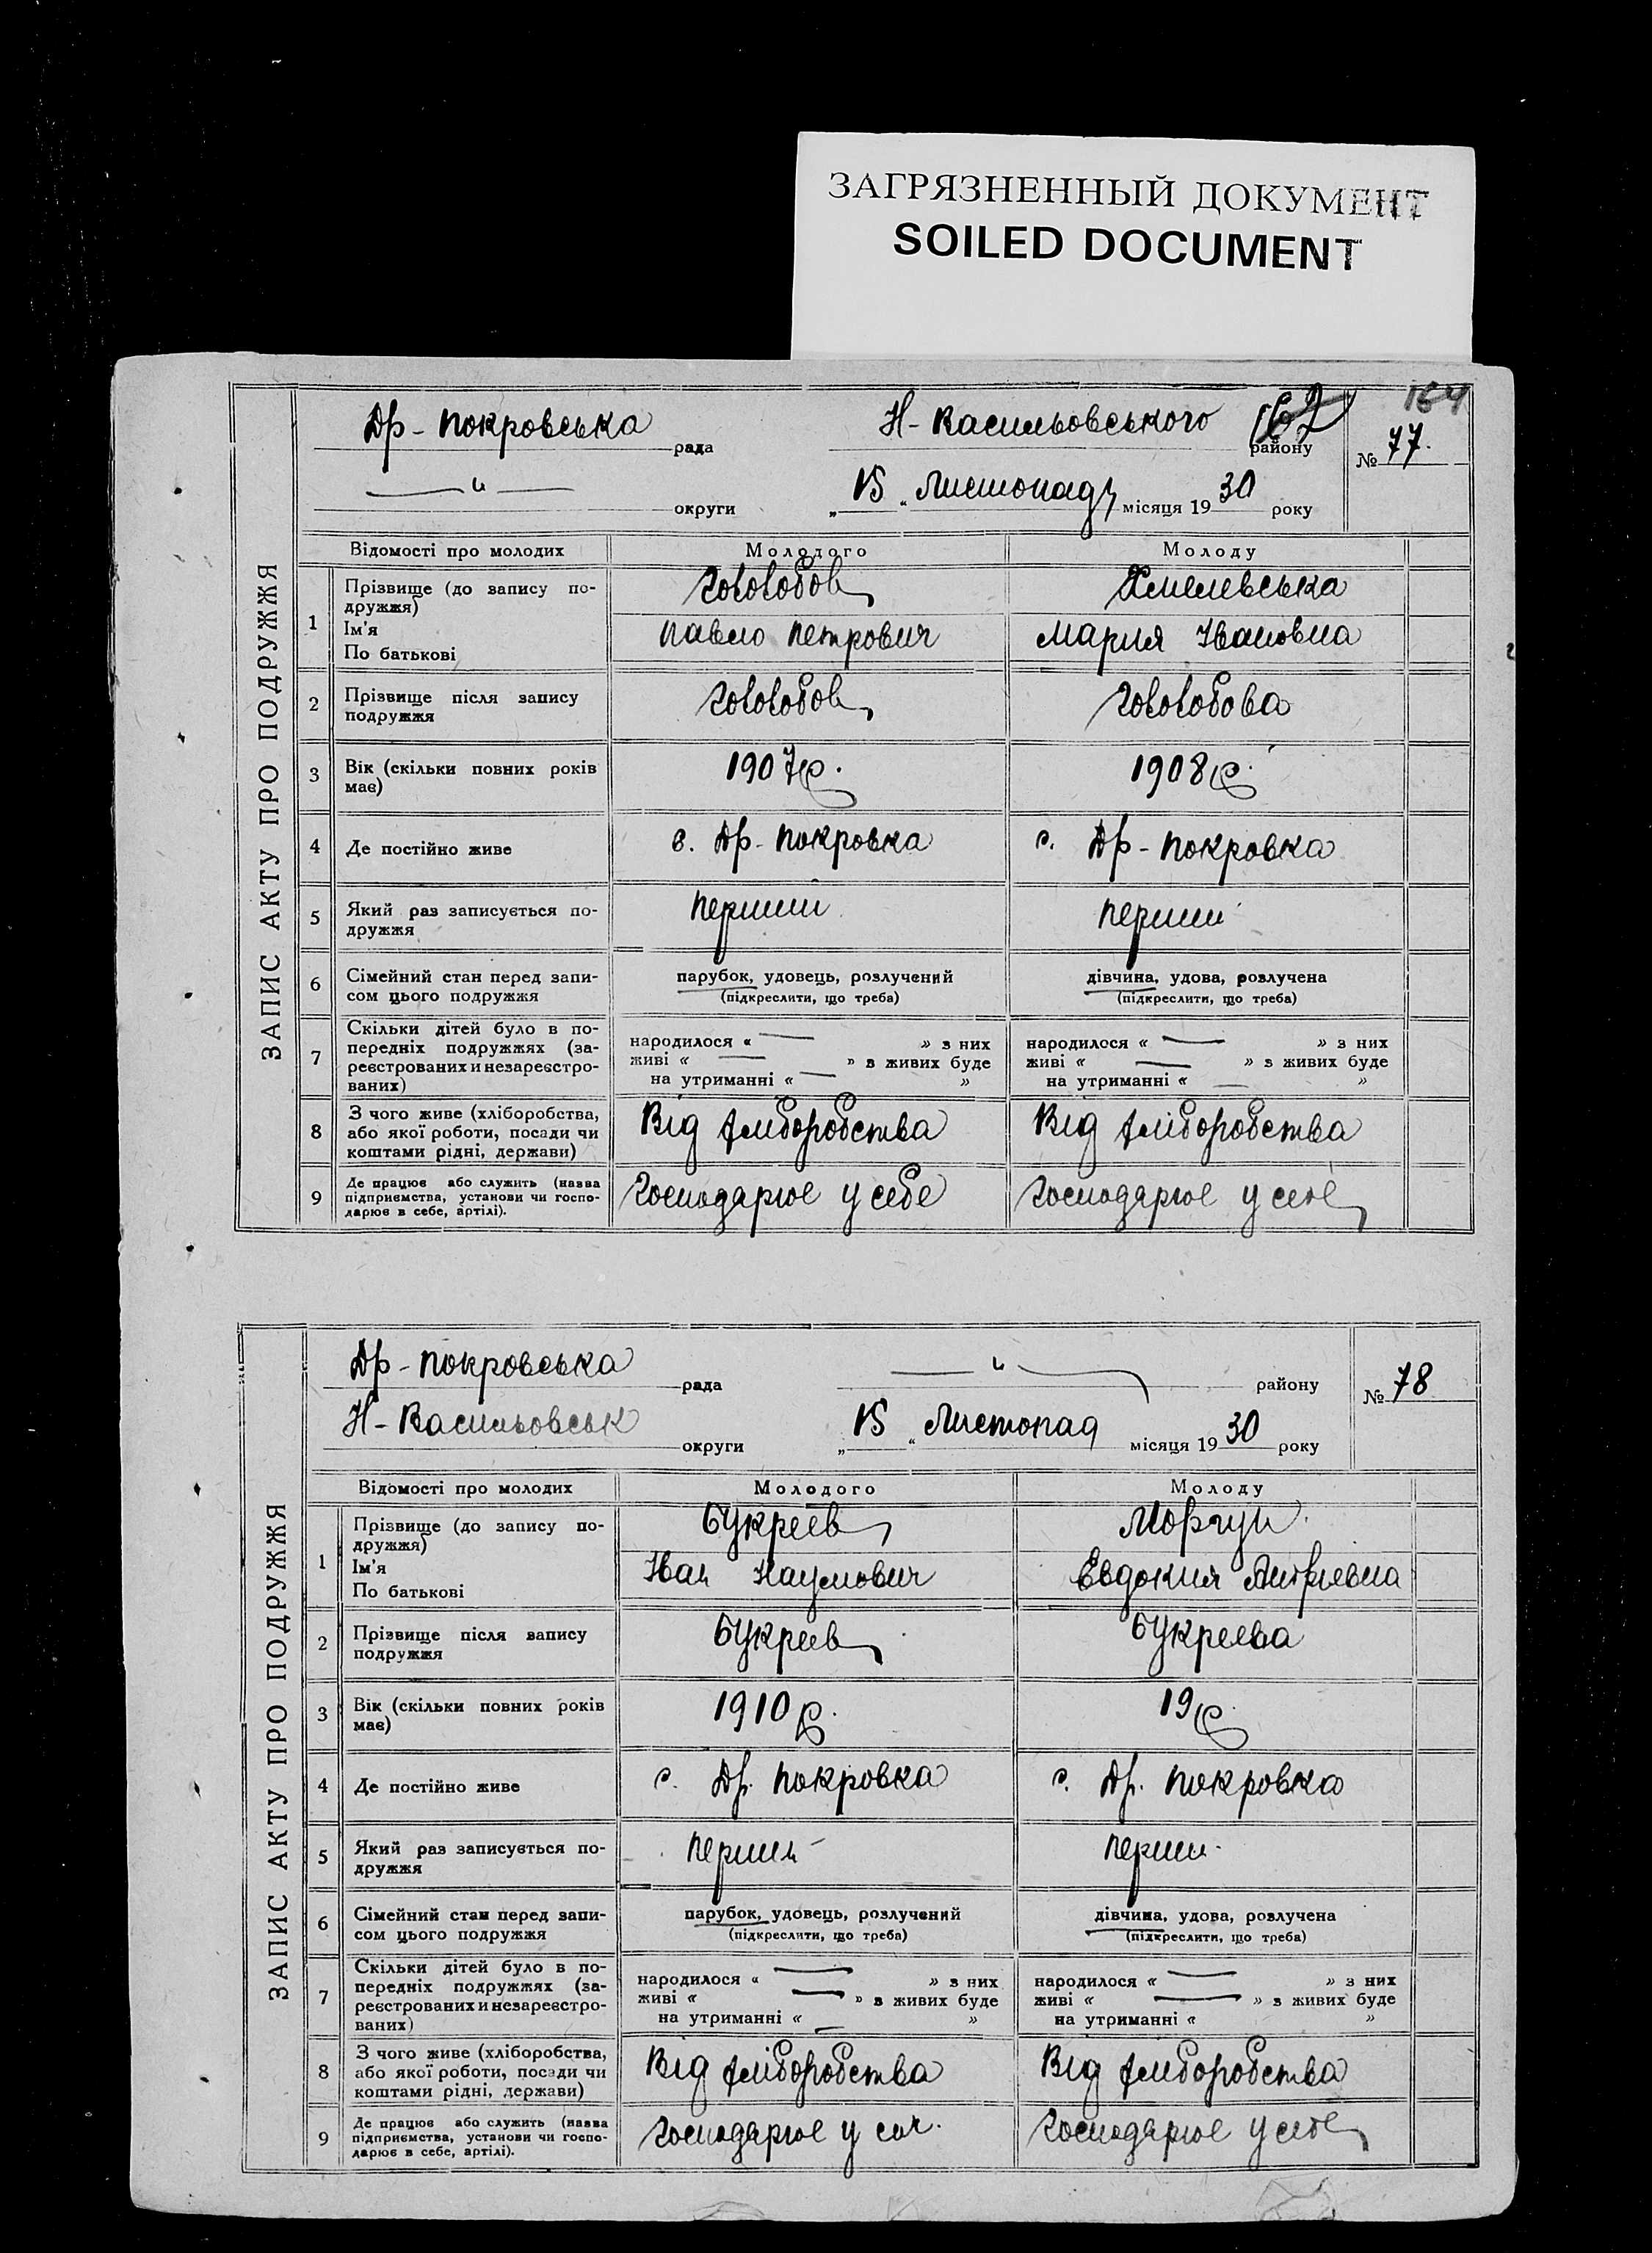 ЗАГРЯЗНЕННЫЙ ДОКУМЕНТ
SOILED DOCUMENT
164
Др-Покровська рада Н-Васильовського району 162 № 77.
— " — округи „15“ Листопад місяця 1930 року
ЗАПИС АКТУ ПРО ПОДРУЖЖЯ
Відомості про молодих Молодого Молоду
1 Прізвище (до запису по- Хмелевська
дружжя)
Ім'я Павло Петрович Мария Ивановна
По батькові
2 Прізвище після запису
подружжя
3 Вік (скільки повних років 1907р. 1908р.
має)
4 Де постійно живе с. Др-Покровка с. Др-Покровка
5 Який раз записується по- перший перший
дружжя
6 Сімейний стан перед запи- парубок, удовець, розлучений дівчина, удова, розлучена
сом цього подружжя (підкреслити, що треба) (підкреслити, що треба)
7 Скільки дітей було в по-
передніх подружжях (за- народилося « — » з них народилося « — » з них
реєстрованих и незареєстро- живі « — » з живих буде живі « — » з живих буде
ваних) на утриманні « — » на утриманні « — »
8 З чого живе (хліборобства, Від хліборобства Від хліборобства
або якої роботи, посади чи
коштами рідні, держави)
9 Де працює або служить (назва Господарює у себе Господарює у себе
підприємства, установи чи госпо-
дарює в себе, артілі).
Др-Покровська рада — " — району № 78
Н-Васильовськ округи „15“ Листопад місяця 1930 року
ЗАПИС АКТУ ПРО ПОДРУЖЖЯ
Відомості про молодих Молодого Молоду
1 Прізвище (до запису по- Букреев Моргун
дружжя)
Ім'я Иван Наумович Евдокия
По батькові
2 Прізвище після запису Букреев Букреева
подружжя
3 Вік (скільки повних років 1910р. 19р.
має)
4 Де постійно живе с. Др. Покровка с. Др. Покровка
5 Який раз записується по- перший перший
дружжя
6 Сімейний стан перед запи- парубок, удовець, розлучений дівчина, удова, розлучена
сом цього подружжя (підкреслити, що треба) (підкреслити, що треба)
7 Скільки дітей було в по-
передніх подружжях (за- народилося « — » з них народилося « — » з них
реєстрованих и незареєстро- живі « — » з живих буде живі « — » з живих буде
ваних) на утриманні « — » на утриманні « »
8 З чого живе (хліборобства, Від хліборобства Від хліборобства
або якої роботи, посади чи
коштами рідні, держави)
9 Де працює або служить (назва Господарює у Господарює у себе
підприємства, установи чи госпо-
дарює в себе, артілі).